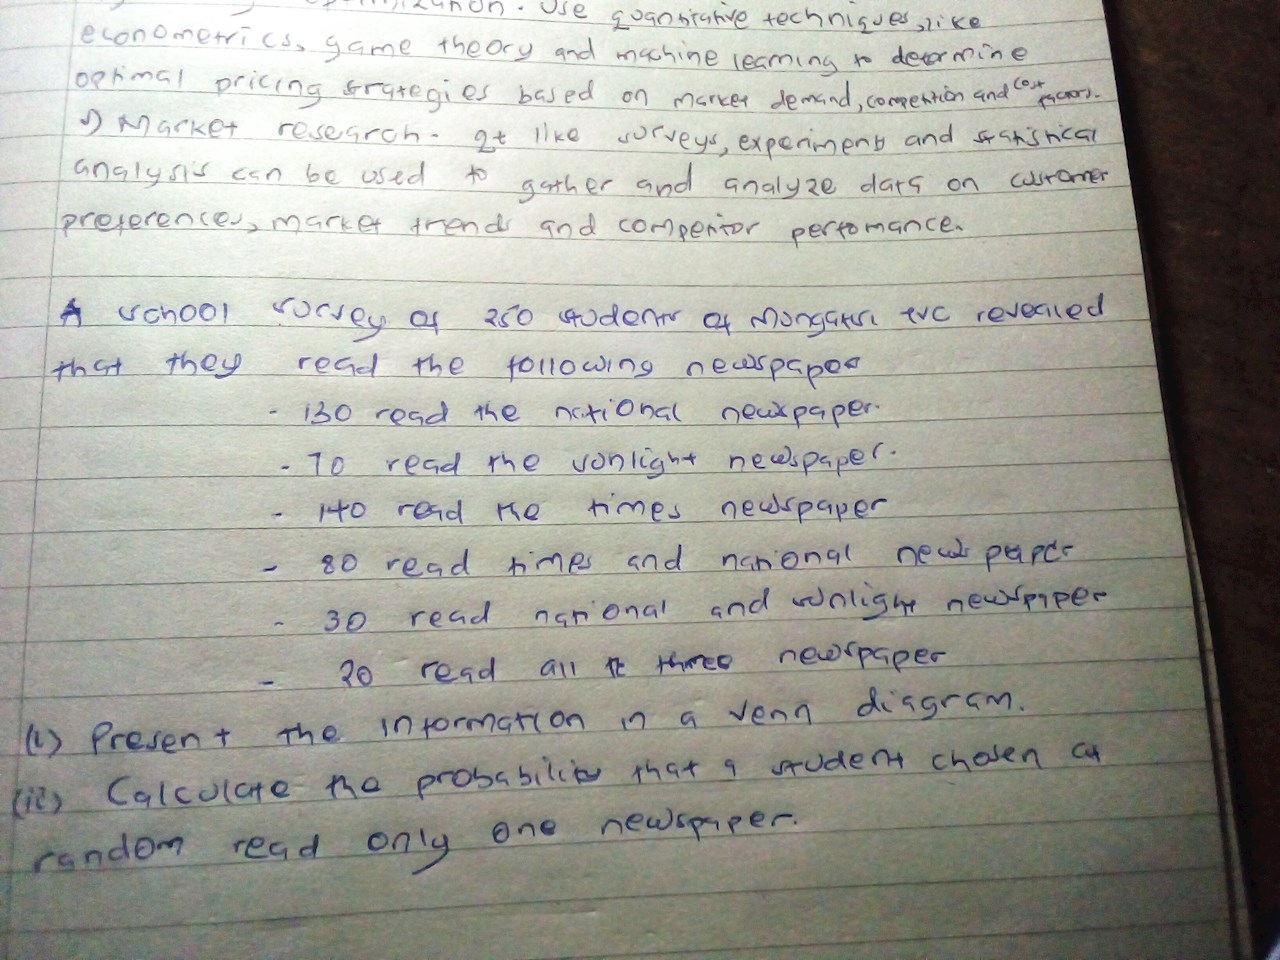 optimization. Use quantitative techniques, like
econometrics, game theory and machine learning to determine
optimal pricing strategies based on market demand, competition and cost factors.
Market research - It like surveys, experiments and statistical
analysis can be used to gather and analyze data on customer
preferences, market trends and competitor perfomance.
A school survey of 250 students of revealed
that they read the following newspaper
- 130 read the national newspaper.
- 70 read the sunlight newspaper.
- 140 read the times newspaper
- 80 read times and national newspaper
- 30 read national and sunlight newspaper
- 20 read all three newspaper
(i) Present the information in a venn diagram.
(ii) Calculate the probability that a student chosen at
random read only one newspaper.